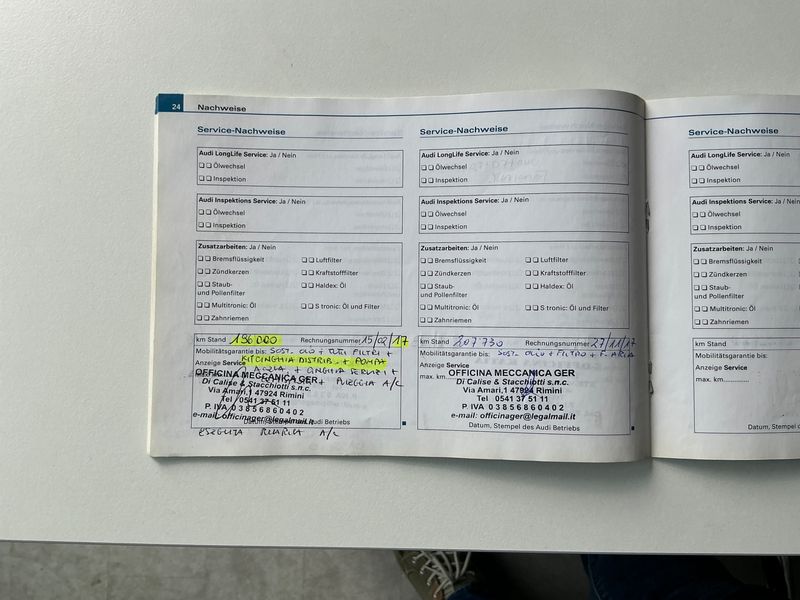 24 Nachweise
Service-Nachweise
Audi LongLife Service: Ja / Nein
Ölwechsel
Inspektion
Audi Inspektions Service: Ja / Nein
Ölwechsel
Inspektion
Zusatzarbeiten: Ja / Nein
Bremsflüssigkeit Luftfilter
Zündkerzen Kraftstofffilter
Staub- Haldex: Öl
und Pollenfilter
Multitronic: Öl S tronic: Öl und Filter
Zahnriemen
km Stand 196000 Rechnungsnummer 15/02/17
Mobilitätsgarantie bis: SOST. OLIO + TUTTI FILTRI +
Anzeige Service KIT CINGHIA DISTRIB. + POMPA
ACQUA + CINGHIA SERVIZI +
OFFICINA MECCANICA GER
+ PULEGGIA A/C
Di Calise & Stacchiotti s.n.c.
Via Amari,1 47924 Rimini
Tel 0541 37 51 11
P. IVA 0 3 8 5 6 8 6 0 4 0 2
e-mail: officinager@legalmail.it
Datum, Stempel des Audi Betriebs
ESEGUITA RICARICA A/C
Service-Nachweise
Audi LongLife Service: Ja / Nein
Ölwechsel
Inspektion
Audi Inspektions Service: Ja / Nein
Ölwechsel
Inspektion
Zusatzarbeiten: Ja / Nein
Bremsflüssigkeit Luftfilter
Zündkerzen Kraftstofffilter
Staub- Haldex: Öl
und Pollenfilter
Multitronic: Öl S tronic: Öl und Filter
Zahnriemen
km Stand 207730 Rechnungsnummer 27/11/17
Mobilitätsgarantie bis: SOST. OLIO + FILTRO + F. ARIA
Anzeige Service
OFFICINA MECCANICA GER
max. km
Di Calise & Stacchiotti s.n.c.
Via Amari,1 47924 Rimini
Tel 0541 37 51 11
P. IVA 0 3 8 5 6 8 6 0 4 0 2
e-mail: officinager@legalmail.it
Datum, Stempel des Audi Betriebs
Service-Nachweise
Audi LongLife Service: Ja / Nein
Ölwechsel
Inspektion
Audi Inspektions Service: Ja
Ölwechsel
Inspektion
Zusatzarbeiten: Ja / Nein
Bremsflüssigkeit
Zündkerzen
Staub-
und Pollenfilter
Multitronic: Öl
Zahnriemen
km Stand
Mobilitätsgarantie bis:
Anzeige Service
max. km
Datum, S